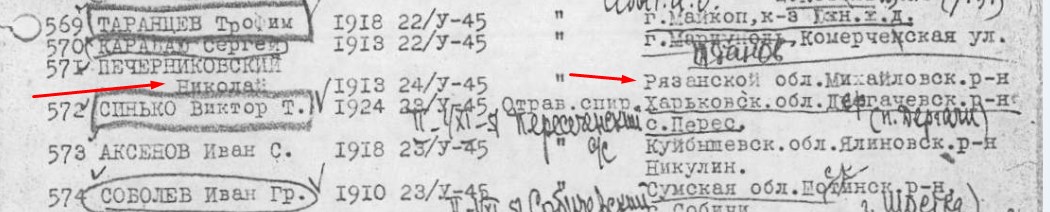 569 ТАРАНЦЕВ Трофим 1918 22/У-45 " г.Майкоп,к-з
570 КАРАБАЮ Сергей 1913 22/У-45 " г.Мариуполь, Комерческая ул.
571 ПЕЧЕРНИКОВСКИЙ
Николай 1913 24/У-45 " Рязанской обл.Михайловск.р-н
572 СИНЬКО Виктор Т. 1924 Отрав.спир. Харьковск.обл.Дергачевск.р-н
Пересечанский с.Перес. (п.Дергачи)
573 АКСЕНОВ Иван С. 1918 23/У-45 " Куйбышевск.обл.Ялиновск.р-н
Никулин.
574 СОБОЛЕВ Иван Гр. 1910 23/У-45 " Сумская обл. р-н,
Собини